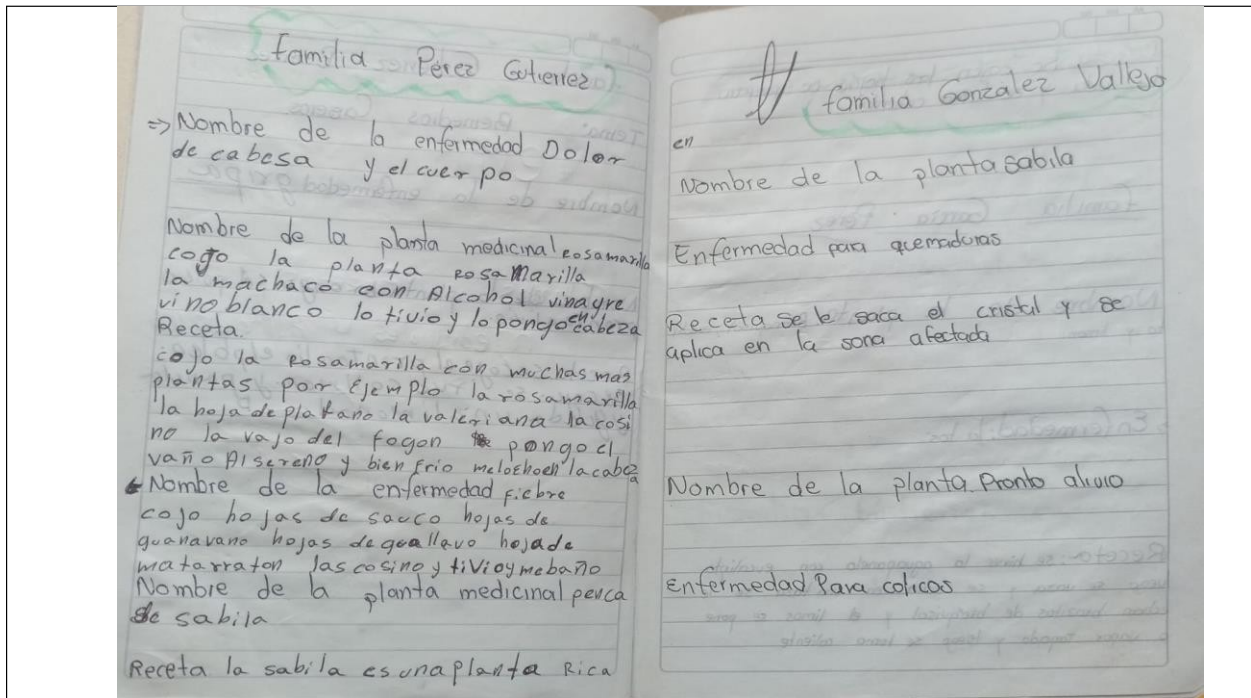 Familia Pérez Gutierrez
=> Nombre de la enfermedad Dolor
de cabesa y el cuerpo
Nombre de la planta medicinal Rosamarilla
cojo la planta Rosamarilla
la machaco con Alcohol vinagre
vino blanco lo tivio y lo pongo en cabeza
Receta.
cojo la Rosamarilla con muchas mas
plantas por Ejemplo la rosamarilla
la hoja de platano la valeriana la cosi
no la vajo del fogon pongo el
vaño Al sereno y bien frio meloehoen la cabeza
Nombre de la enfermedad fiebre
cojo hojas de sauco hojas de
guanavano hojas de guallavo hoja de
matarraton las cosino y tivio y me baño
Nombre de la planta medicinal penca
de sabila
Receta la sabila es una planta Rica
familia Gonzalez Vallejo
en
Nombre de la planta sabila
Enfermedad para quemaduras
Receta se le saca el cristal y se
aplica en la sona afectada
Nombre de la planta. Pronto alivio
Enfermedad Para colicos